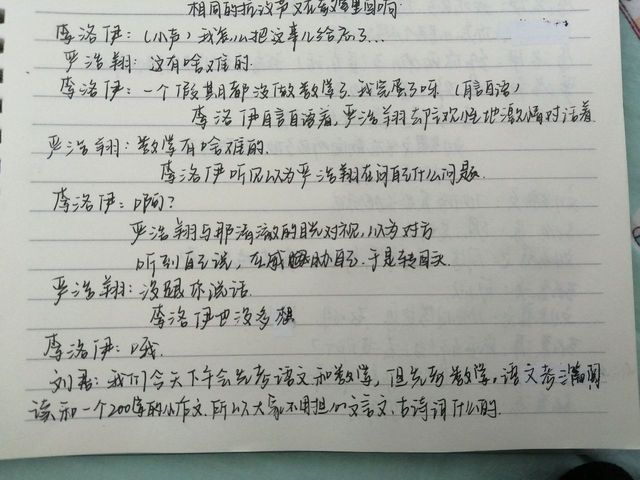 相同的抗议声又在教室里回响
李洛伊：（小声）我怎么把这事儿给忘了…
严浩翔：这有啥难的.
李洛伊：一个假期都没做数学了.我完蛋了呀（自言自语）
李洛伊自言自语着，严浩翔却主观性地激情对话着
严浩翔：数学有啥难的.
李洛伊听见以为严浩翔在问自己什么问题.
李洛伊：啊？
严浩翔与那清澈的目光对视，以为对方
听到自己说，在威胁自己.于是转回头.
严浩翔：没跟你说话.
李洛伊也没多想
李洛伊：哦.
刘君：我们今天下午会先考语文和数学，但先考数学，语文考三篇阅
读和一个200字的小作文.所以大家不用担心文言文、古诗词什么的.